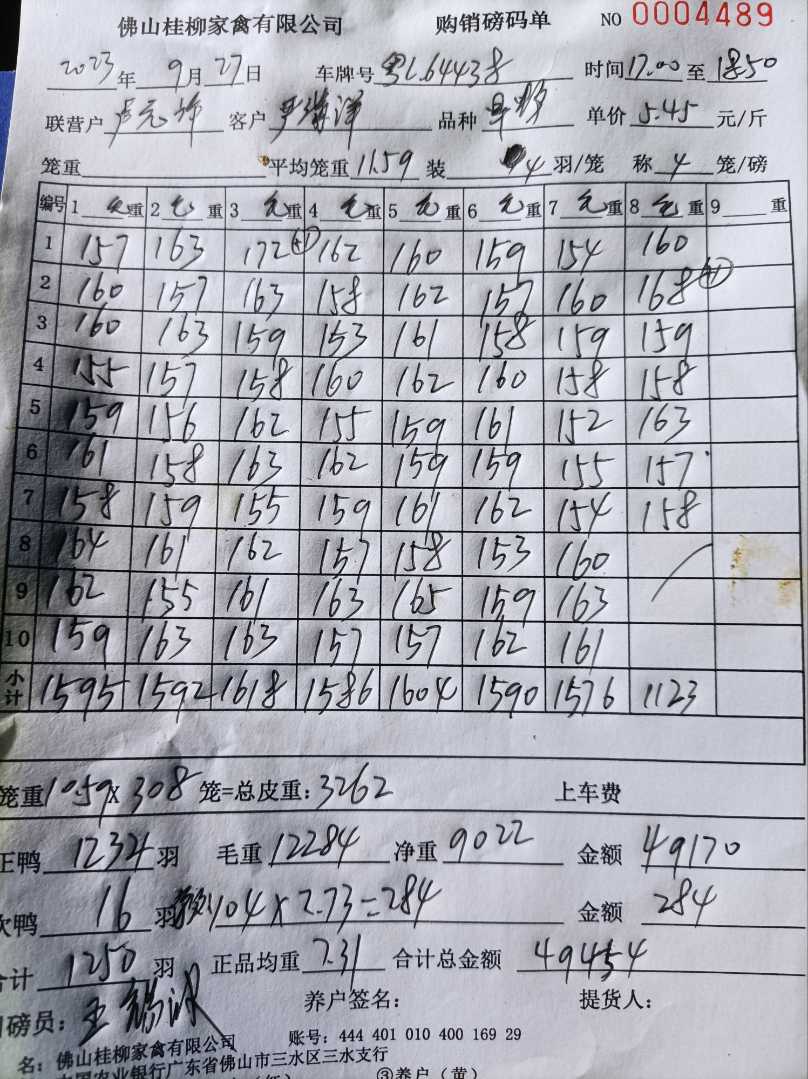 佛山桂柳家禽有限公司 购销磅码单 NO 0004489
2023年 9月 27日 车牌号 粤L64438 时间 17.00 至 18.50
联营户 客户 品种 单价 5.45 元/斤
笼重 平均笼重 11.59 装 4 羽/笼 称 4 笼/磅
编号 1 毛重 2 毛重 3 毛重 4 毛重 5 毛重 6 毛重 7 毛重 8 毛重 9 重
1 157 163 172 (+1) 162 160 159 154 160
2 160 157 163 158 162 157 160 168 (+1)
3 160 163 159 153 161 158 159 159
4 155 157 158 160 162 160 158 158
5 159 156 162 155 159 161 152 163
6 161 158 163 162 159 159 155 157
7 158 159 155 159 161 162 154 158
8 164 161 162 157 158 153 160
9 162 155 161 163 165 159 163
10 159 163 163 157 157 162 161
小计 1595 1592 1618 1586 1604 1590 1576 1123
笼重 10.59 X 308 笼=总皮重: 3262 上车费
正鸭 1234 羽 毛重 12284 净重 9022 金额 49170
次鸭 16 羽 104 X 2.73 = 284 金额 284
合计 1250 羽 正品均重 7.31 合计总金额 49454
司磅员: 养户签名: 提货人:
名: 佛山桂柳家禽有限公司 账号: 444 401 010 400 169 29
中国农业银行广东省佛山市三水区三水支行
③养户（黄）